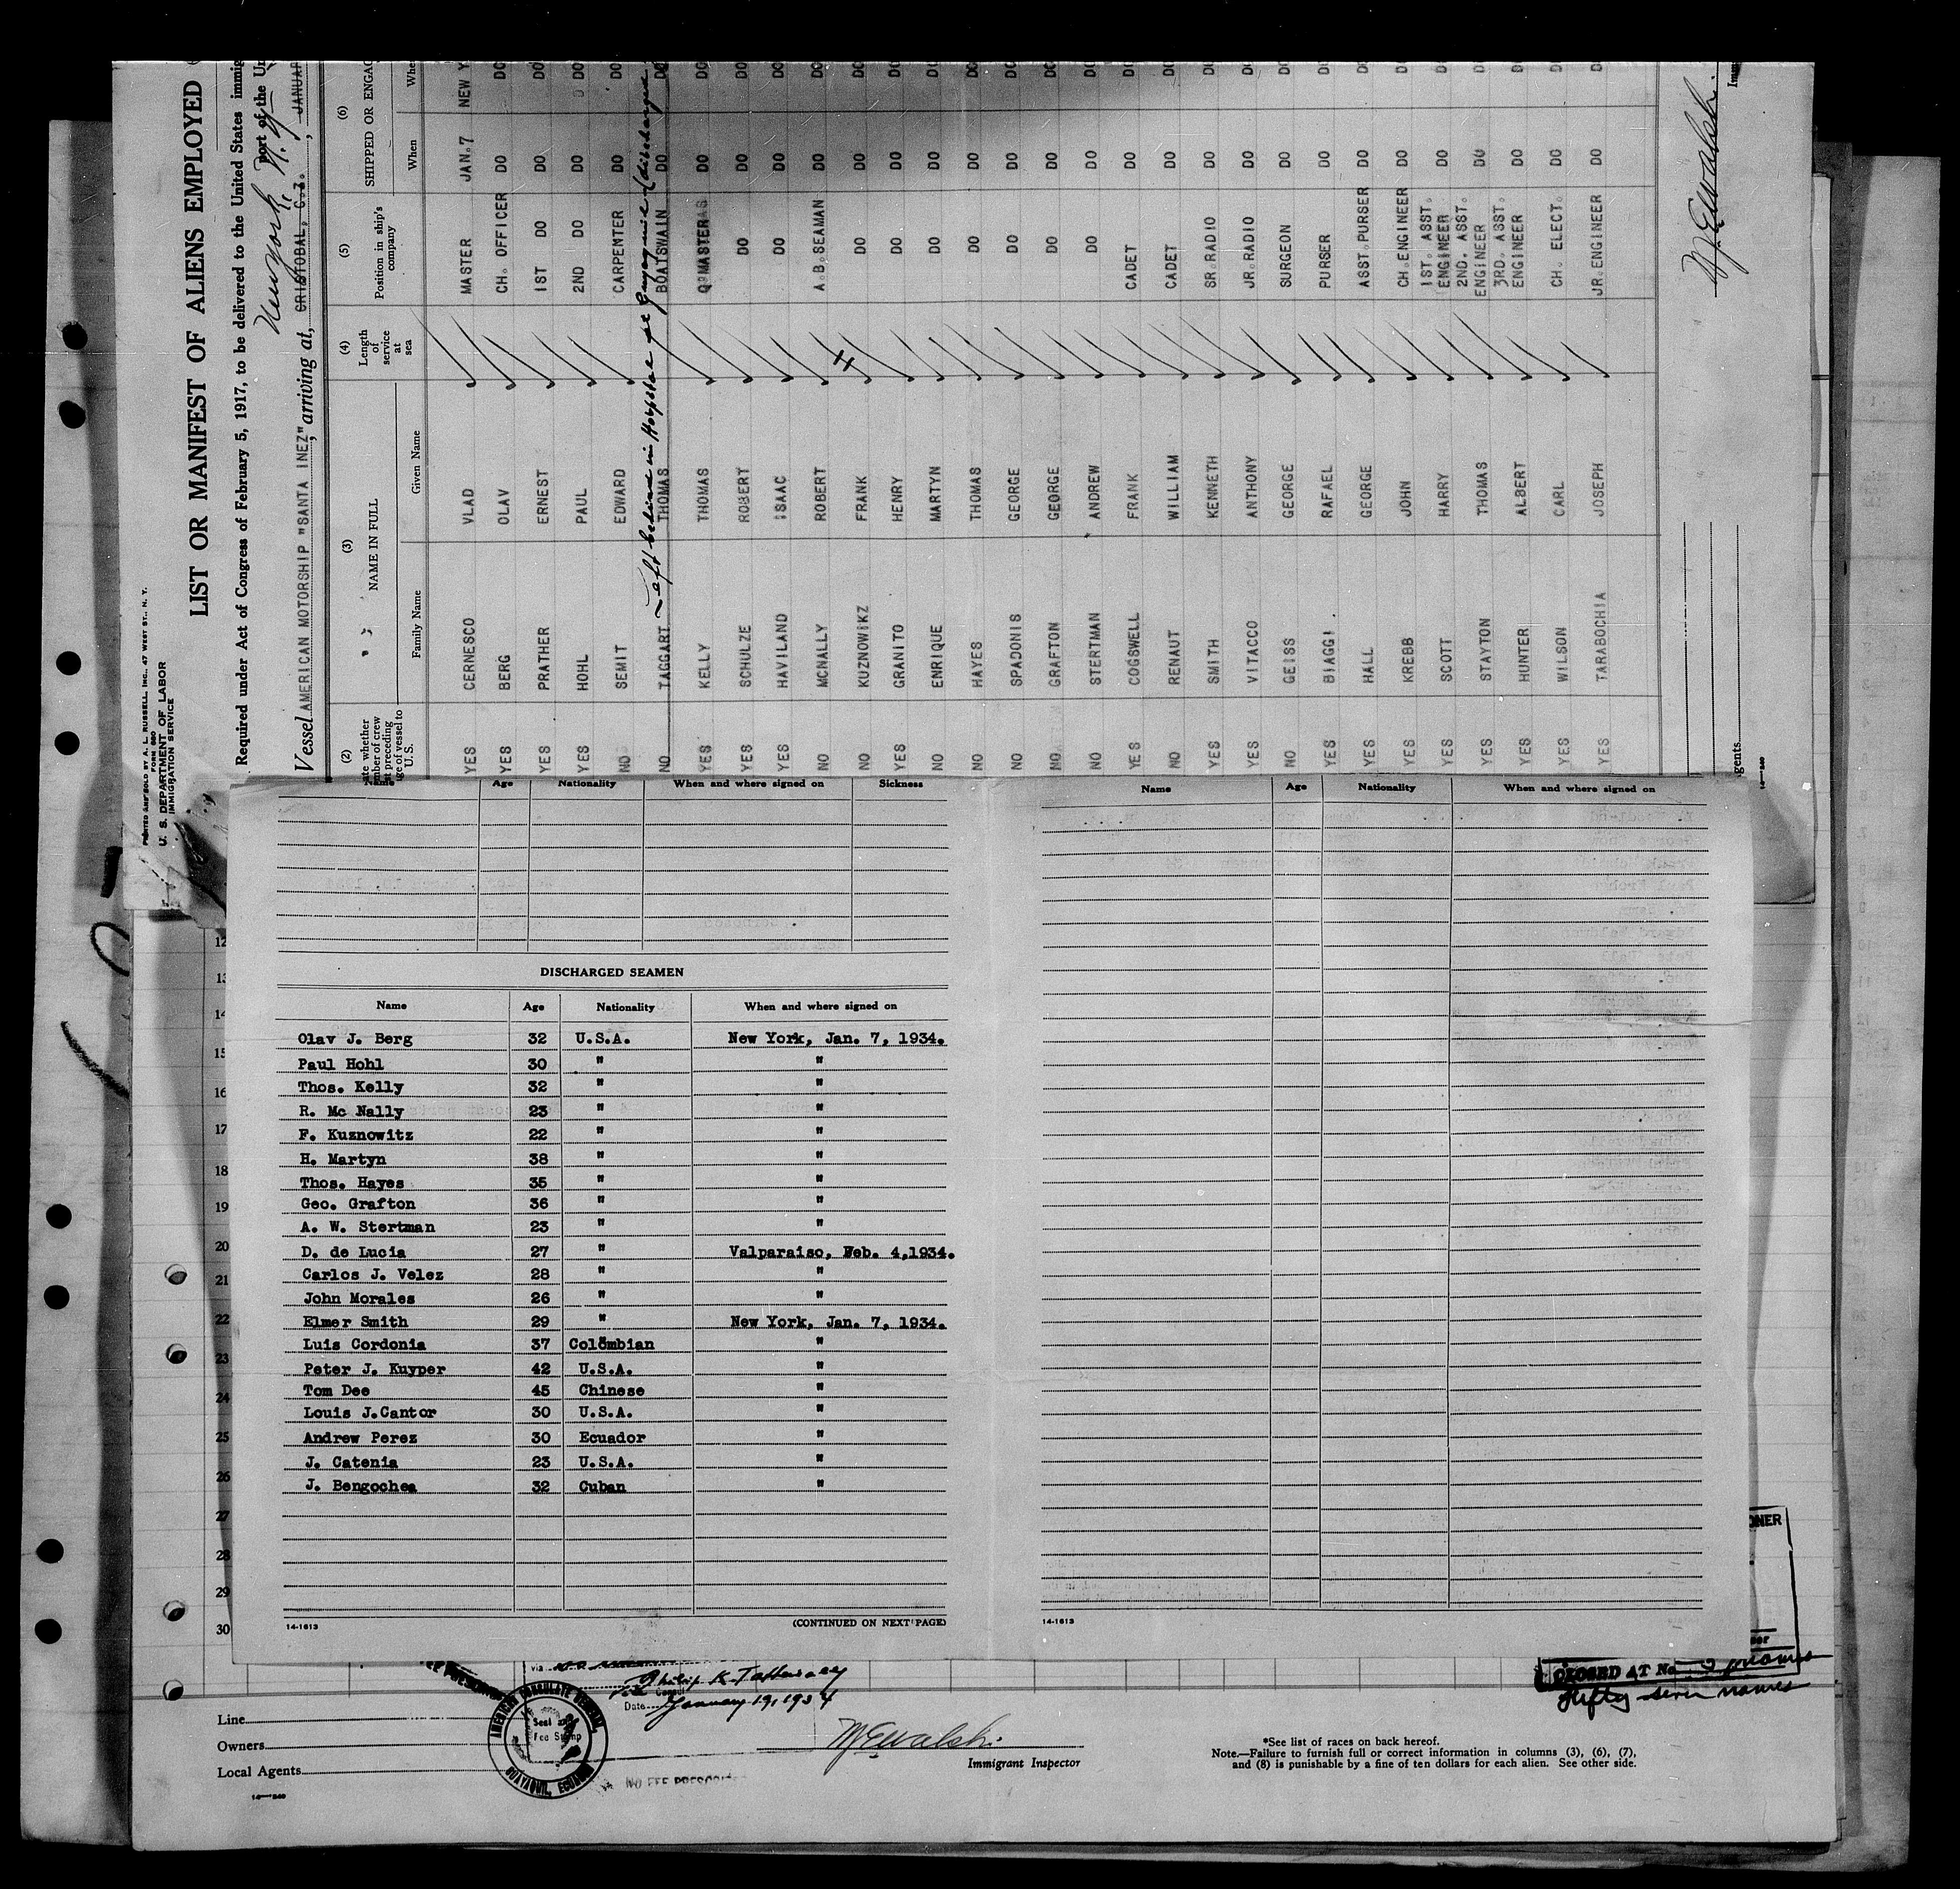 PRINTED AND SOLD BY A. L. RUSSELL, INC., 47 WEST ST., N. Y.
FORM 680
U. S. DEPARTMENT OF LABOR
IMMIGRATION SERVICE
LIST OR MANIFEST OF ALIENS EMPLOYED
Required under Act of Congress of February 5, 1917, to be delivered to the United States immig
port of the Un
New York N.Y.
Vessel AMERICAN MOTORSHIP "SANTA INEZ", arriving at, CRISTOBAL, C.Z., JANUAR
(2) (3) (4) (5) (6)
NAME IN FULL
Length of service at sea
Position in ship's company
SHIPPED OR ENGAG
ate whether mber of crew t preceding ge of vessel to U. S.
Family Name Given Name When Whe
YES CERNESCO VLAD MASTER JAN.7 NEW Y
YES BERG OLAV CH. OFFICER DO DO
YES PRATHER ERNEST 1ST DO DO DO
YES HOHL PAUL 2ND DO DO DO
NO SEMIT EDWARD CARPENTER DO DO
NO TAGGART THOMAS BOATSWAIN DO DO
Left behind in Hospital at Guayaquil (discharged
YES KELLY THOMAS Q.MASTER DO DO
YES SCHULZE ROBERT DO DO DO
YES HAVILAND ISAAC DO DO DO
NO MCNALLY ROBERT A.B.SEAMAN DO DO
NO KUZNOWIKZ FRANK DO DO DO
YES GRANITO HENRY DO DO DO
NO ENRIQUE MARTYN DO DO DO
NO HAYES THOMAS DO DO DO
NO SPADONIS GEORGE DO DO DO
NO GRAFTON GEORGE DO DO DO
NO STERTMAN ANDREW DO DO DO
YES COGSWELL FRANK CADET DO DO
NO RENAUT WILLIAM CADET DO DO
YES SMITH KENNETH SR.RADIO DO DO
YES VITACCO ANTHONY JR.RADIO DO DO
NO GEISS GEORGE SURGEON DO DO
YES BIAGGI RAFAEL PURSER DO DO
YES HALL GEORGE ASST.PURSER DO DO
YES KREBB JOHN CH.ENGINEER DO DO
YES SCOTT HARRY 1ST. ASST. ENGINEER DO DO
YES STAYTON THOMAS 2ND. ASST. ENGINEER DO DO
YES HUNTER ALBERT 3RD. ASST. ENGINEER DO DO
YES WILSON CARL CH. ELECT. DO DO
YES TARABOCHIA JOSEPH JR.ENGINEER DO DO
gents
Name Age Nationality When and where signed on Sickness
Name Age Nationality When and where signed on
DISCHARGED SEAMEN
Name Age Nationality When and where signed on
Olav J. Berg 32 U.S.A. New York, Jan. 7, 1934.
Paul Hohl 30 " "
Thos. Kelly 32 " "
R. Mc Nally 23 " "
F. Kuznowitz 22 " "
H. Martyn 38 " "
Thos. Hayes 35 " "
Geo. Grafton 36 " "
A. W. Stertman 23 " "
D. de Lucia 27 " Valparaiso, Feb. 4,1934.
Carlos J. Velez 28 " "
John Morales 26 " "
Elmer Smith 29 " New York, Jan. 7, 1934.
Luis Cordonia 37 Colombian "
Peter J. Kuyper 42 U.S.A. "
Tom Dee 45 Chinese "
Louis J.Cantor 30 U.S.A. "
Andrew Perez 30 Ecuador "
J. Catenia 23 U.S.A. "
J. Bengochea 32 Cuban "
14-1613
(CONTINUED ON NEXT PAGE)
14-1613
12
13
14
15
16
17
18
19
20
21
22
23
24
25
26
27
28
29
30
ONER
CLOSED AT No.
Fifty-seven names
Date January 19, 1934
AMERICAN CONSULATE GENERAL
GUAYAQUIL, ECUADOR
Fee Stamp
NO FEE PRESCRI
Line
Owners
Local Agents
Immigrant Inspector
*See list of races on back hereof.
Note.—Failure to furnish full or correct information in columns (3), (6), (7),
and (8) is punishable by a fine of ten dollars for each alien. See other side.